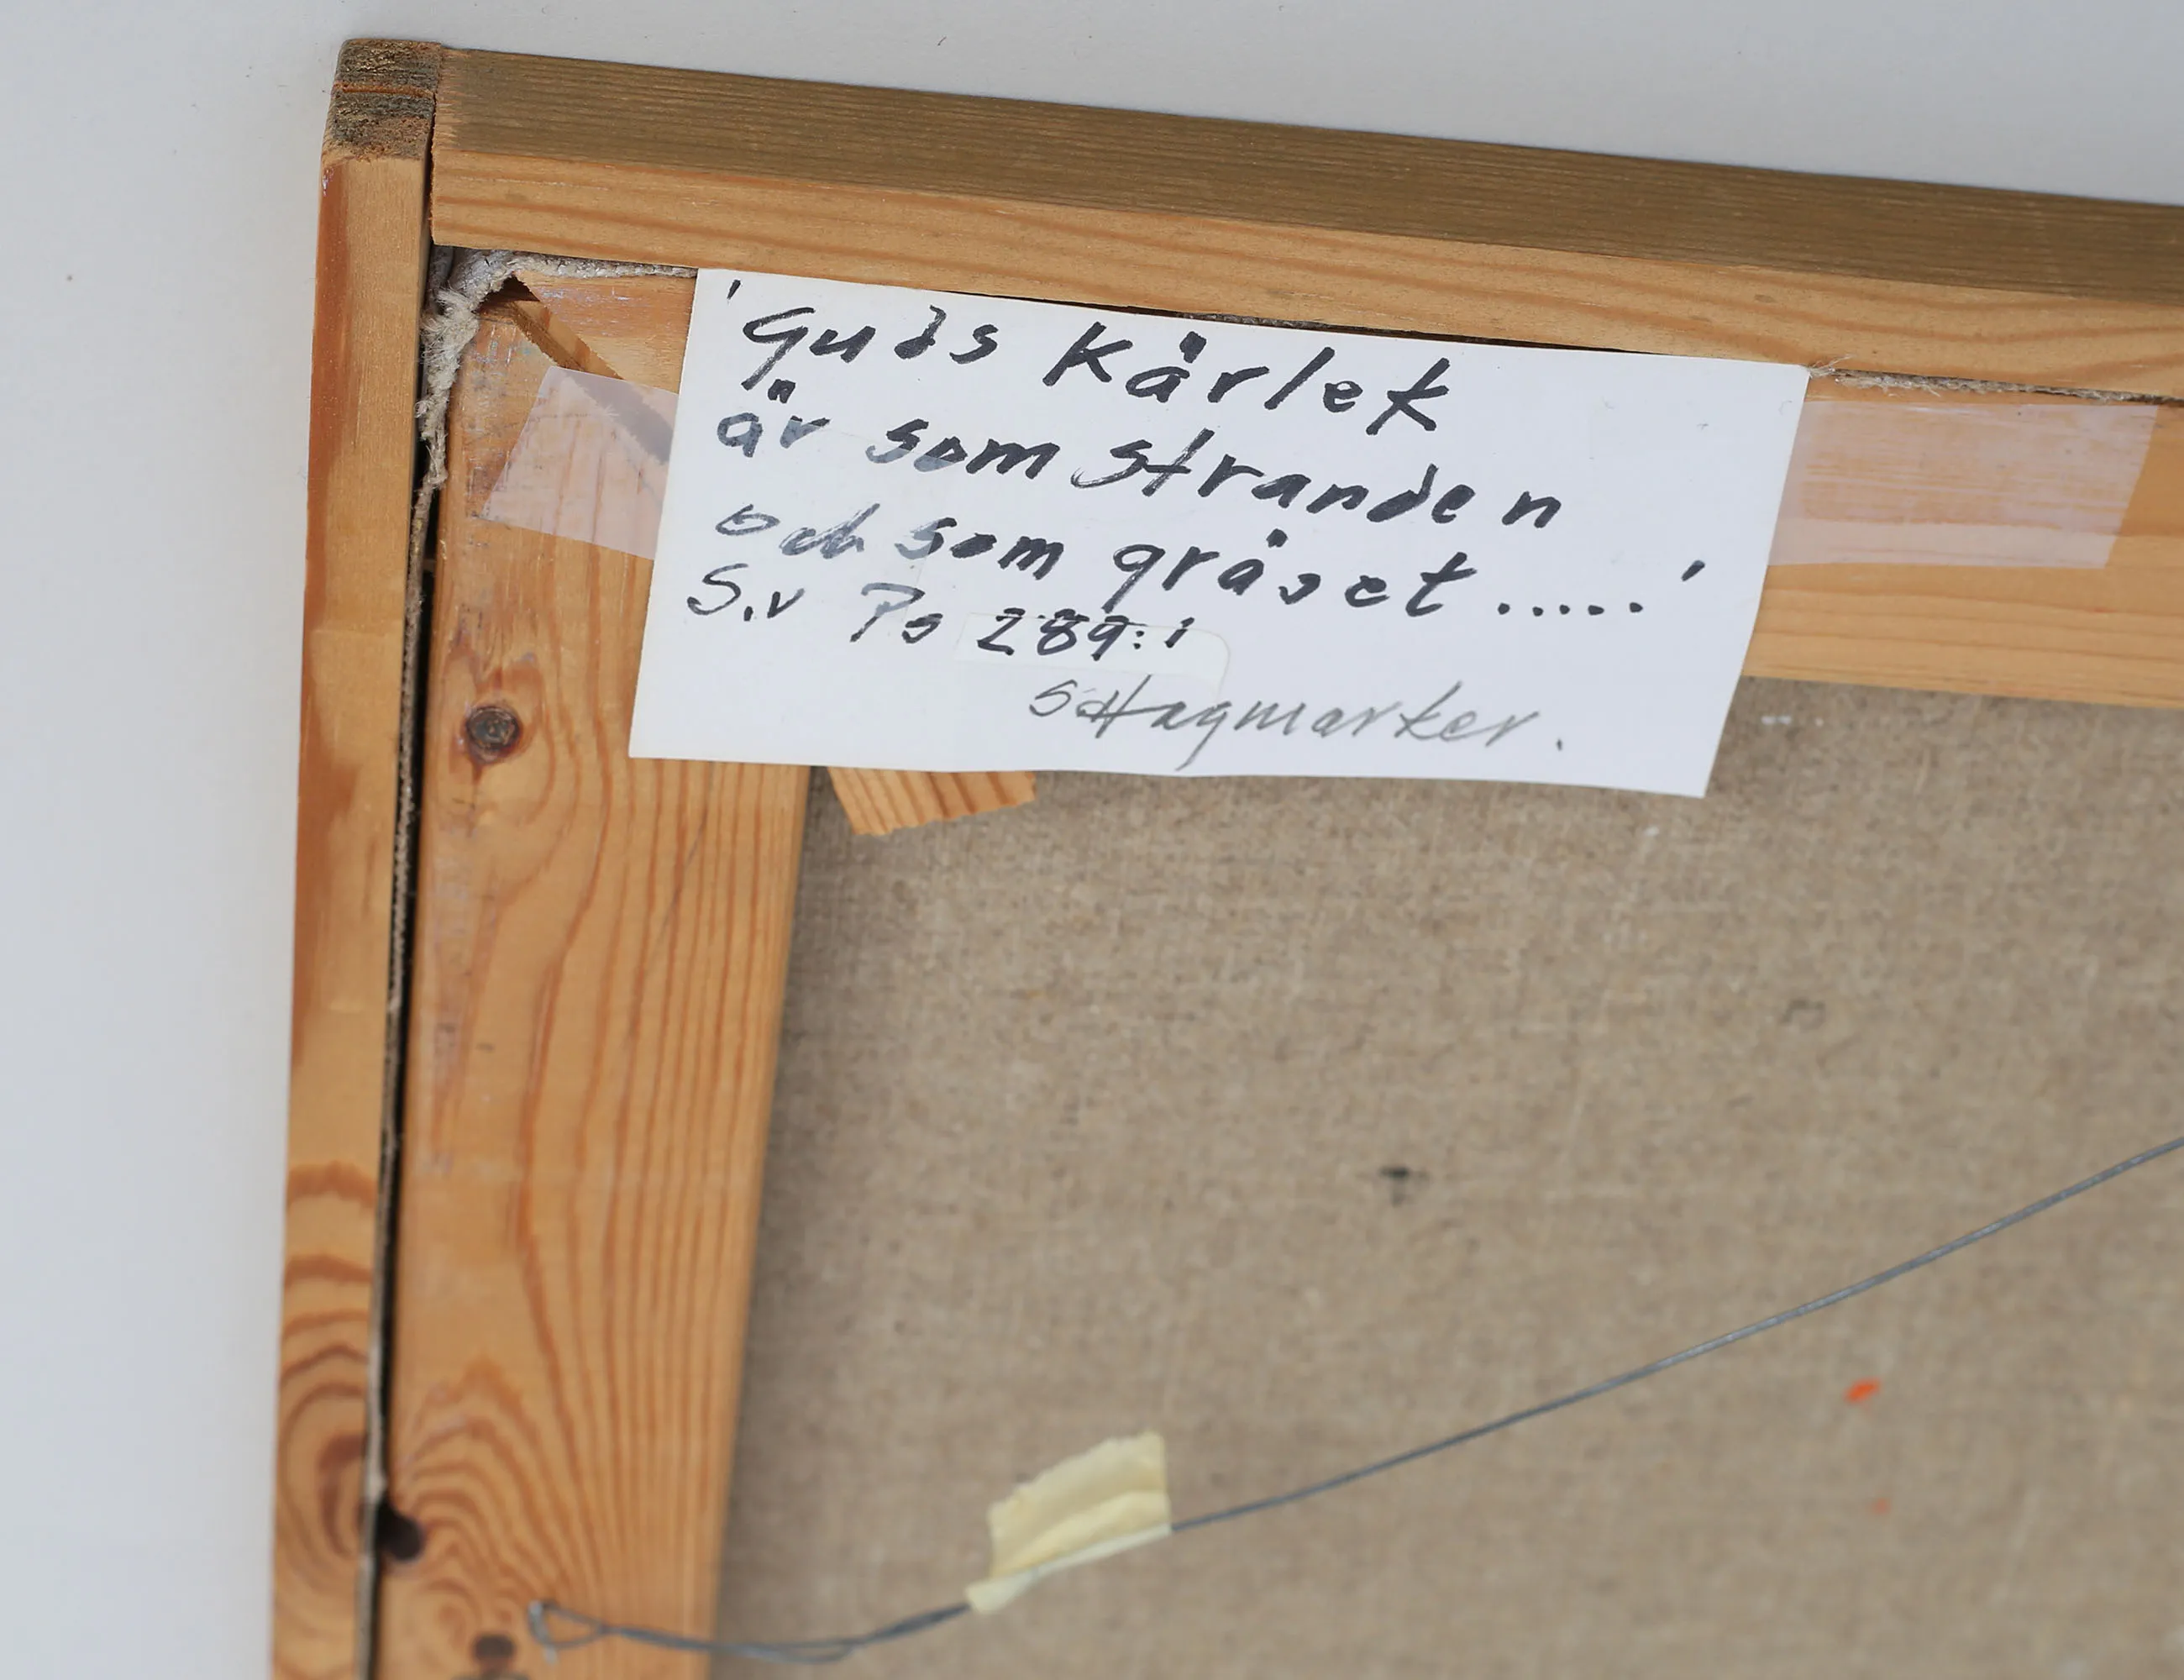 'Guds Kärlek
är som stranden
och som gräset.....'
S.v Ps 289:1
Hagmarker.